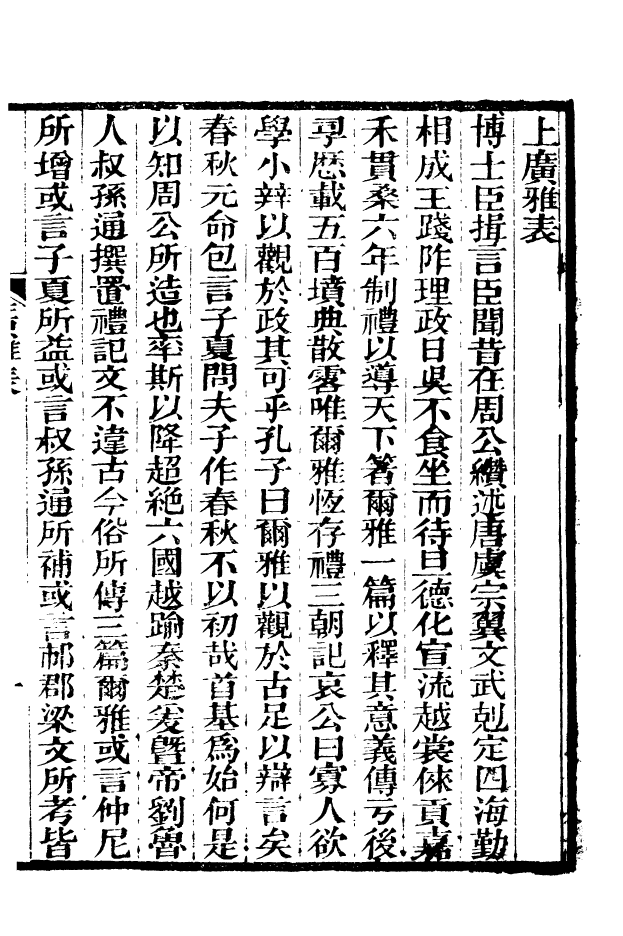 上廣雅表
博士臣揖言臣聞昔在周公纘述唐虞宗翼文武剋定四海勤
相成王踐阼理政日昃不食坐而待旦德化宣流越裳倈貢嘉
禾貫桑六年制禮以導天下箸爾雅一篇以釋其意義傳亏後
㝵歴載五百墳典散零唯爾雅恆存禮三朝記哀公曰寡人欲
學小辯以觀於政其可乎孔子曰爾雅以觀於古足以辯言矣
春秋元命包言子夏問夫子作春秋不以初哉首基爲始何是
以知周公所造也率斯以降超絶六國越踰秦楚爰曁帝劉魯
人叔孫通撰置禮記文不違古今俗所傳三篇爾雅或言仲尼
所增或言子夏所益或言叔孫通所補或言邟郡梁文所考皆
雅表
一